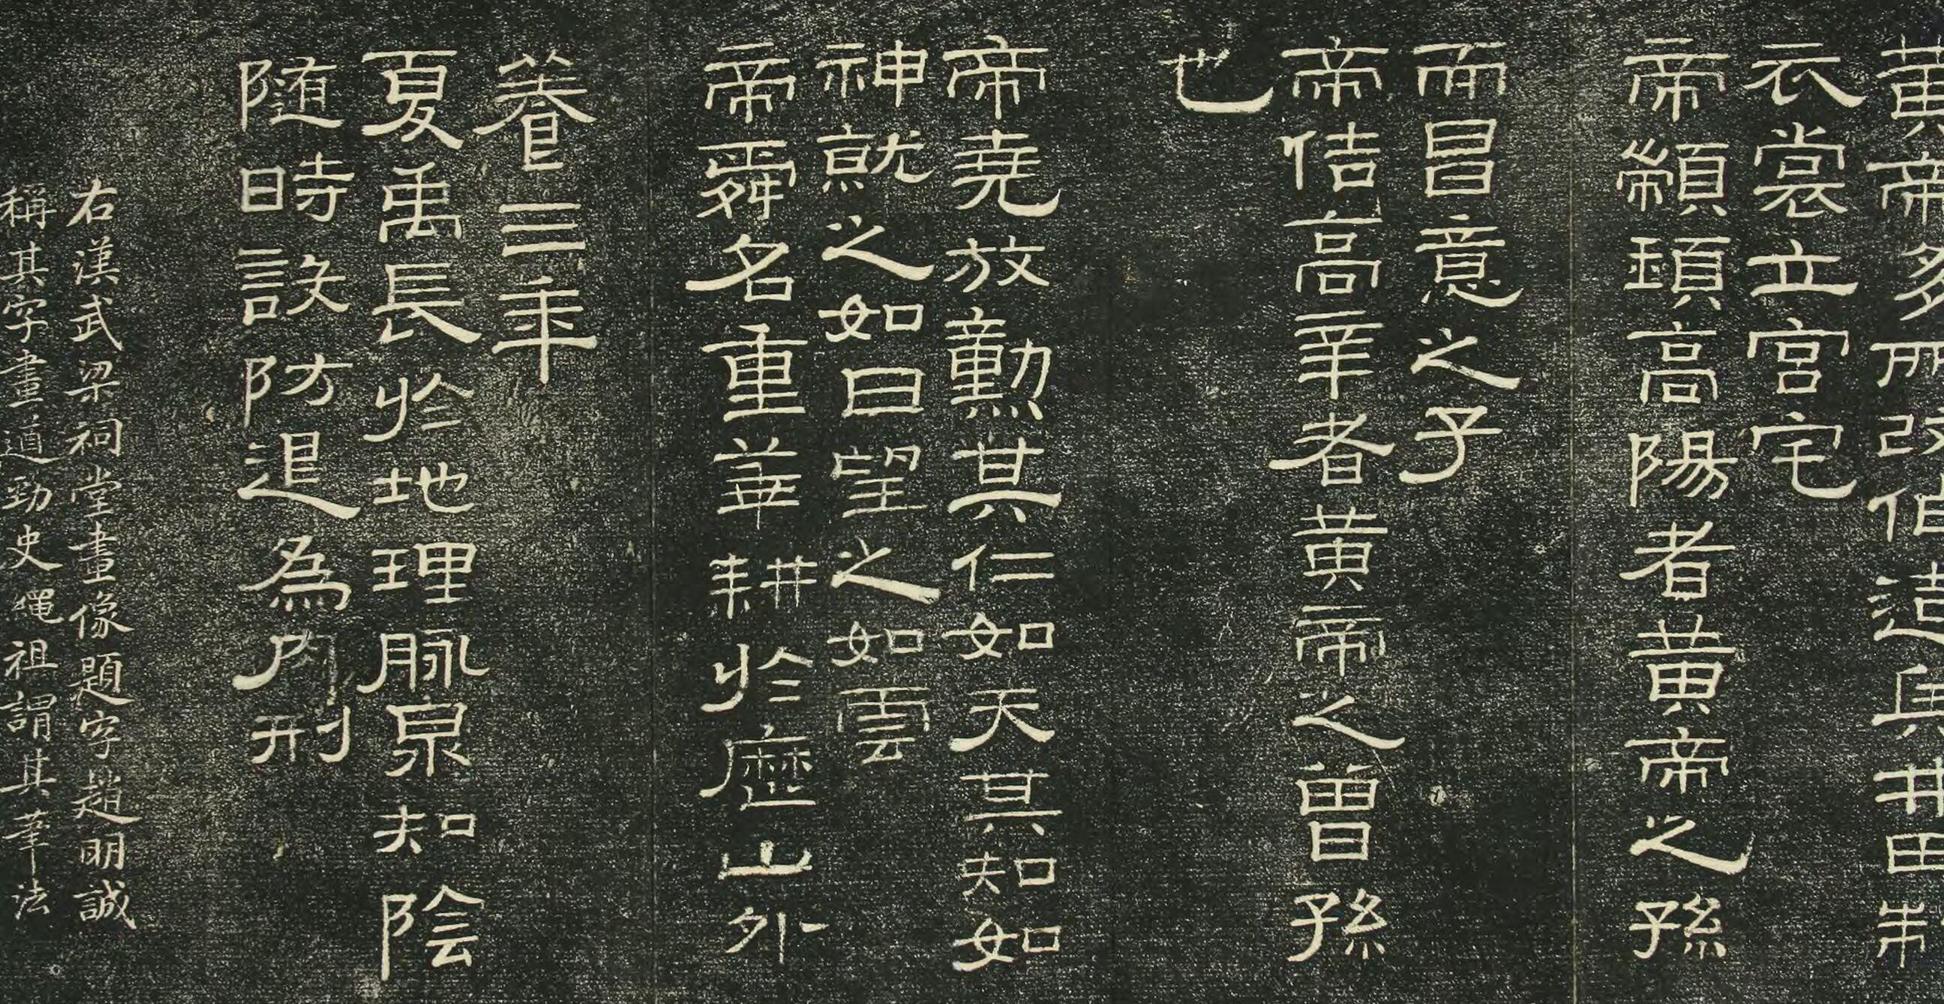 黄帝多所改作造兵井田制
衣裳立宮宅
帝顓頊高陽者黄帝之孫
而昌意之子
帝俈高辛者黄帝之曾孫
也
帝堯放勳其仁如天其知如
神就之如日望之如雲
帝舜名重華耕於歷山外
養三年
夏禹長於地理脉泉知陰
隨時設防退為肉刑
右漢武梁祠堂畫像題字趙明誠
稱其字畫遒勁史繩祖謂其筆法